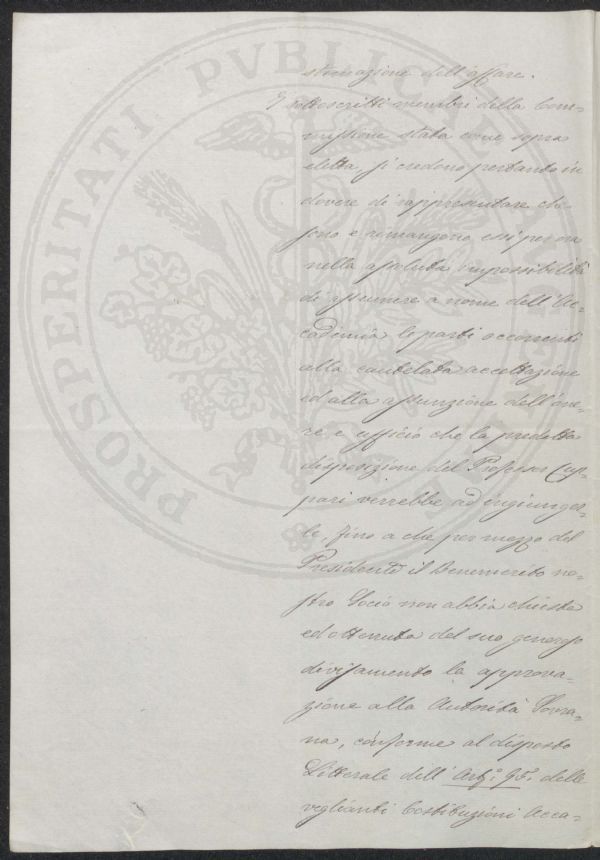 stimazione dell'affare.
I sottoscritti membri della Com=
missione stata come sopra
eletta, si credono pertanto in
dovere di rappresentare che
sono e rimangono essi per ora
nella assoluta impossibilità
di assumere a nome dell'Ac=
cademia le parti occorrenti
alla cautelata accettazione
ed alla assunzione dell'one=
re e ufficio che la predetta
disposizione del Professor Cup=
pari verrebbe ad ingiunger=
le, fino a che per mezzo del
Presidente il Benemerito no=
stro Socio non abbia chiesta
ed ottenuta del suo generoso
divisamento la approva=
zione alla Autorità Sovra=
na, conforme al disposto
Litterale dell'Art.° 95. delle
veglianti Costituzioni Acca=
PROSPERITATI PVBLICAE